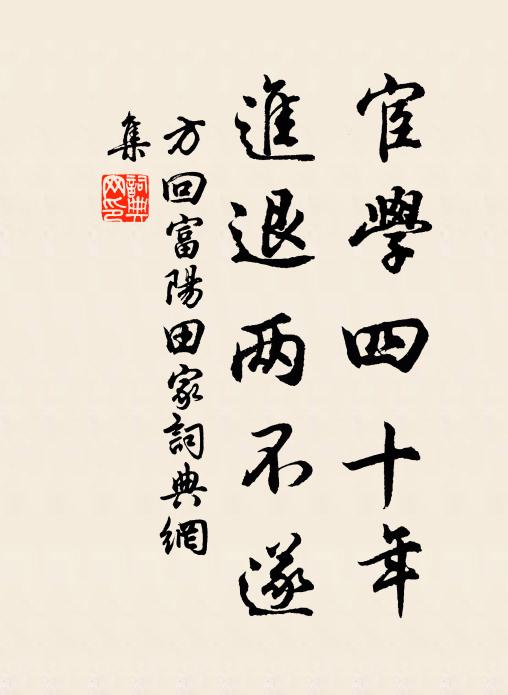 宦學四十年
進退两不遂
方回富陽田家詞典網
集
詞典
网印